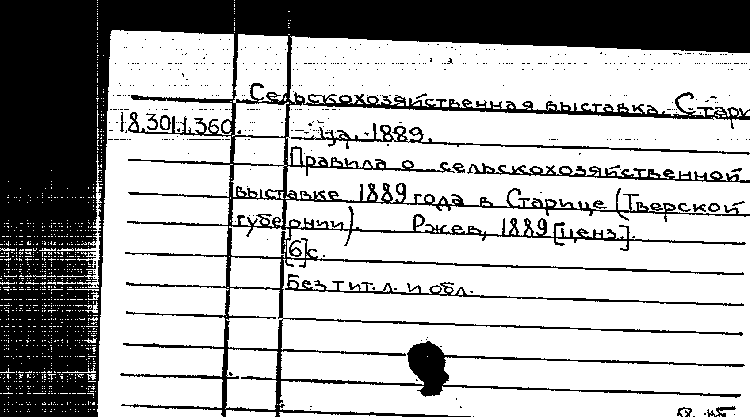 Сельскохозяйственная выставка. Стари
18.301.1.360.
ца. 1889.
Правила о сельскохозяйственной
выставке 1889 года в Старице (Тверской
губернии). Ржев, 1889 [ценз.].
[6]с.
Без тит. л. и обл.